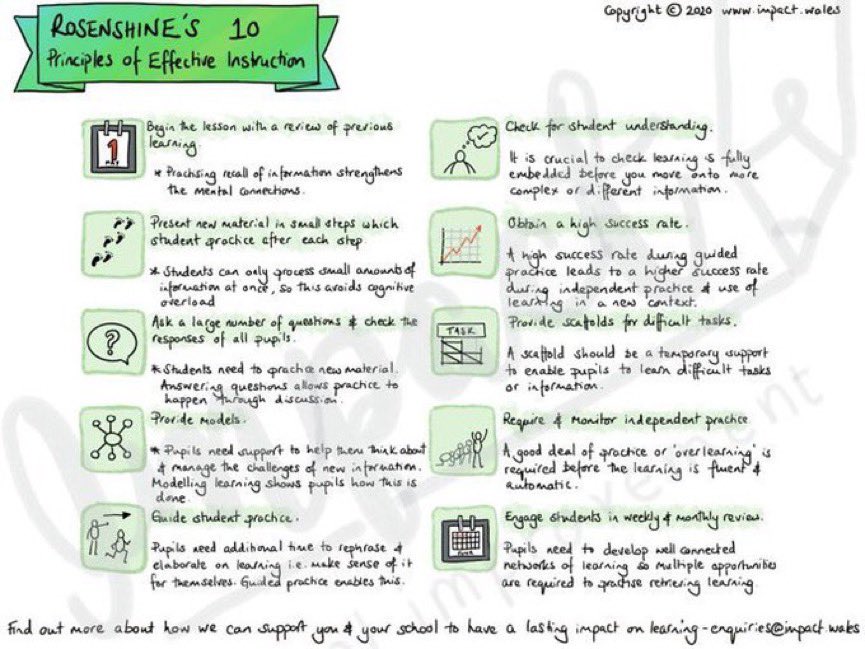 ROSENSHINE'S 10
Principles of Effective Instruction
Copyright © 2020 www.impact.wales
1
Begin the lesson with a review of previous
learning.
* Practising recall of information strengthens
the mental connections.
Present new material in small steps which
student practice after each step.
* Students can only process small amounts of
information at once, so this avoids cognitive
overload
?
Ask a large number of questions & check the
responses of all pupils.
* Students need to practice new material.
Answering questions allows practice to
happen through discussion.
Provide Models.
* Pupils need support to help them think about
& manage the challenges of new information.
Modelling learning shows pupils how this is
done.
Guide student practice.
Pupils need additional time to rephrase &
elaborate on learning i.e. make sense of it
for themselves. Guided practice enables this.
Check for student understanding.
It is crucial to check learning is fully
embedded before you move onto more
complex or different information.
Obtain a high success rate.
A high success rate during guided
practice leads to a higher success rate
during independent practice & use of
learning in a new context.
TASK
Provide scaffolds for difficult tasks.
A scaffold should be a temporary support
to enable pupils to learn difficult tasks
or information.
Require & monitor independent practice
A good deal of practice or 'overlearning' is
required before the learning is fluent &
automatic.
Engage students in weekly & monthly review.
Pupils need to develop well connected
networks of learning so multiple opportunities
are required to practise retrieving learning.
Find out more about how we can support you & your school to have a lasting impact on learning - enquiries@impact.wales